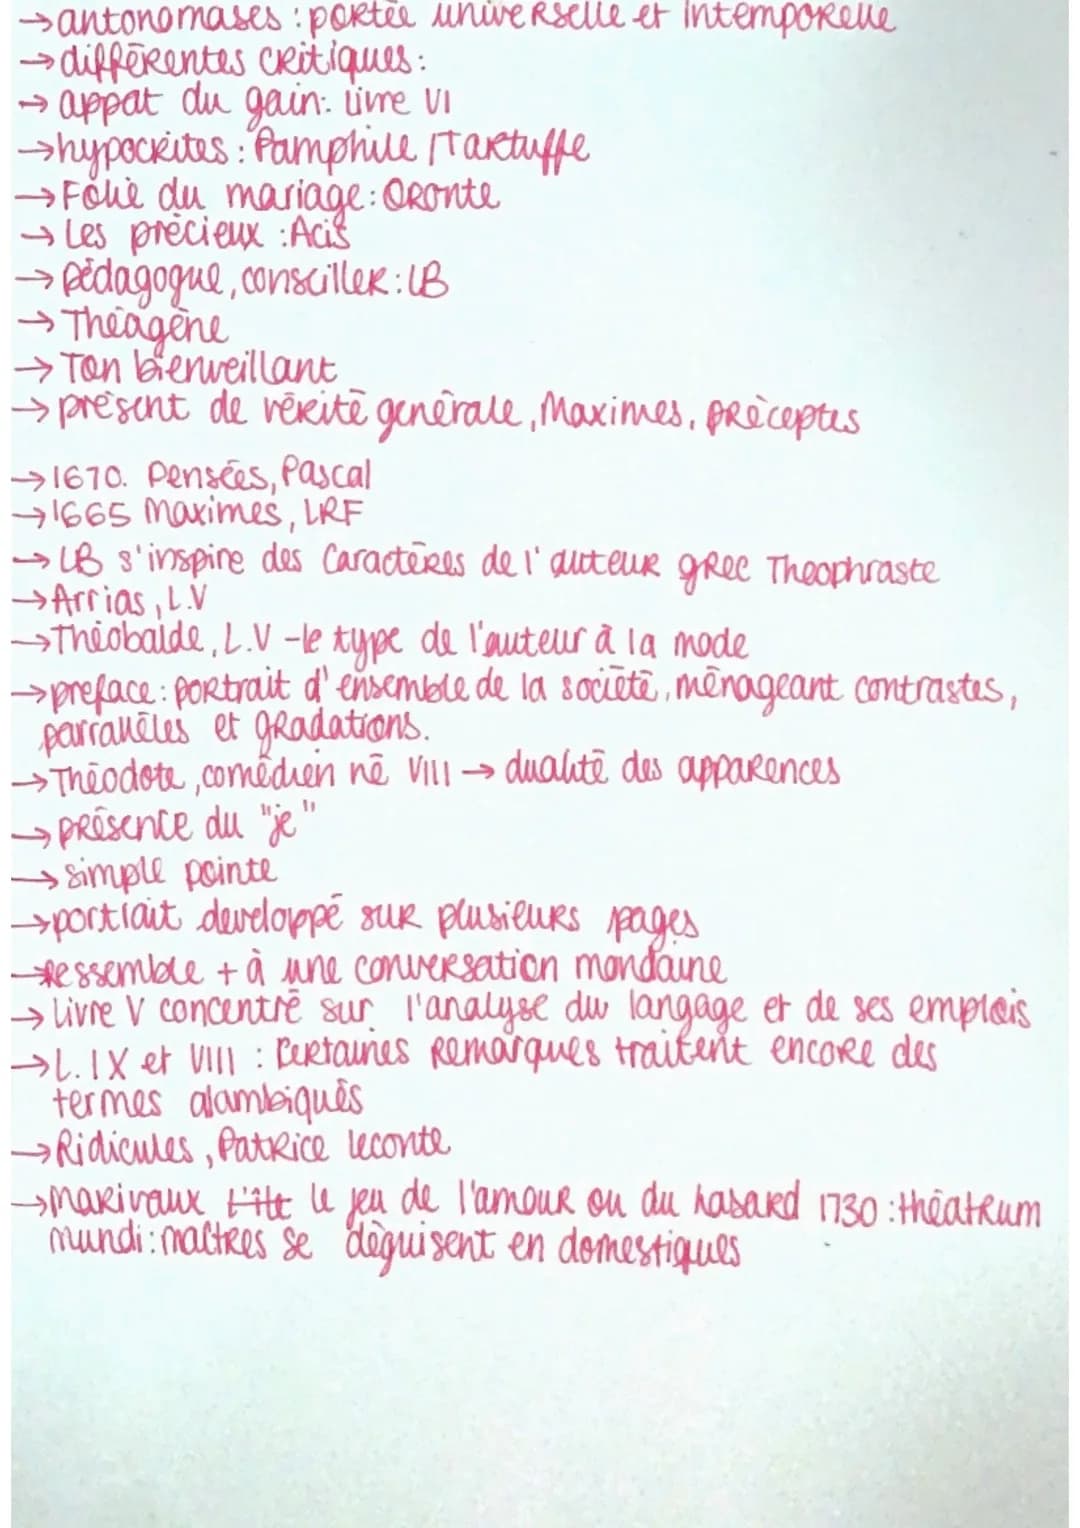 →antonomases : portée universelle et intemporelle
→différentes critiques :
→ appat du gain : livre VI
→hypocrites : Pamphile / Tartuffe
→Folie du mariage : Oronte
→ Les précieux : Acis
→ pédagogue, conseiller : LB
→ Théagène
→ Ton bienveillant
→ présent de vérité générale, Maximes, préceptes
→1670. Pensées, Pascal
→1665 Maximes, LRF
→ LB s'inspire des Caractères de l'auteur grec Theophraste
→Arrias, L.V
→Théobalde, L.V - le type de l'auteur à la mode
→preface : portrait d'ensemble de la société, ménageant contrastes,
parralèles et gradations.
→Théodote, comédien né VIII → dualité des apparences
→présence du "je"
→simple pointe
→portrait developpé sur plusieurs pages
→ressemble + à une conversation mondaine
→ Livre V concentré sur l'analyse du langage et de ses emplois
→L. IX et VIII : Certaines Remarques traitent encore des
termes alambiqués
→Ridicules, Patrice leconte
→Marivaux le jeu de l'amour ou du hasard 1730 : théatrum
mundi : maîtres se déguisent en domestiques